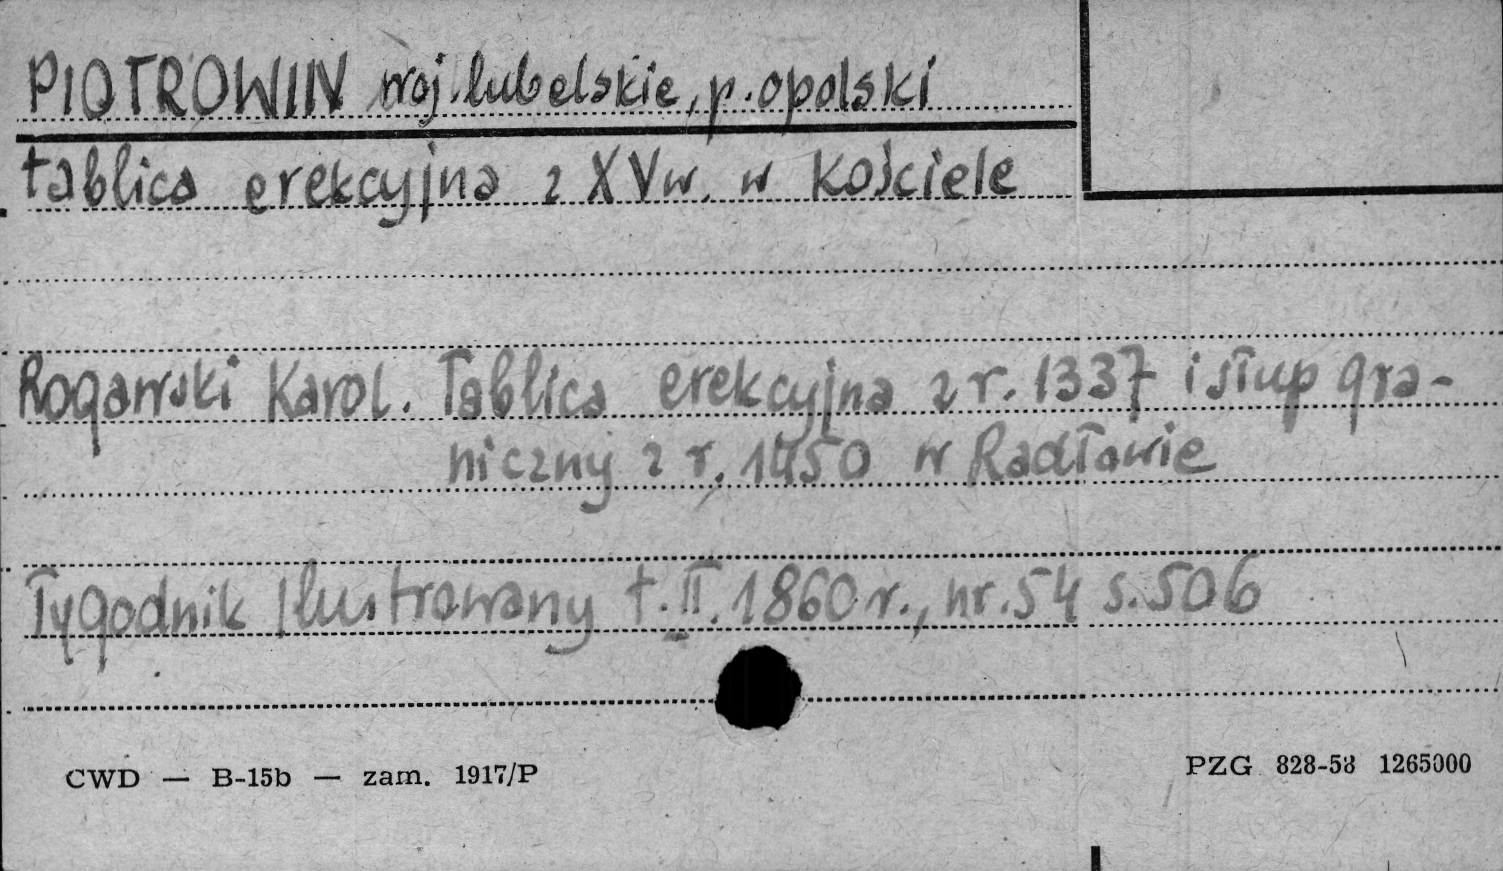 PIOTROWIN woj. lubelskie, p. opolski
tablica erekcyjna z XV w. w kościele
Rogawski Karol. Tablica erekcyjna z r. 1337 i słup gra-
niczny z r. 1450 w Radławie
Tygodnik Ilustrowany t. II. 1860 r., nr. 54 s. 506
CWD — B-15b — zam. 1917/P
PZG 828-58 1265000